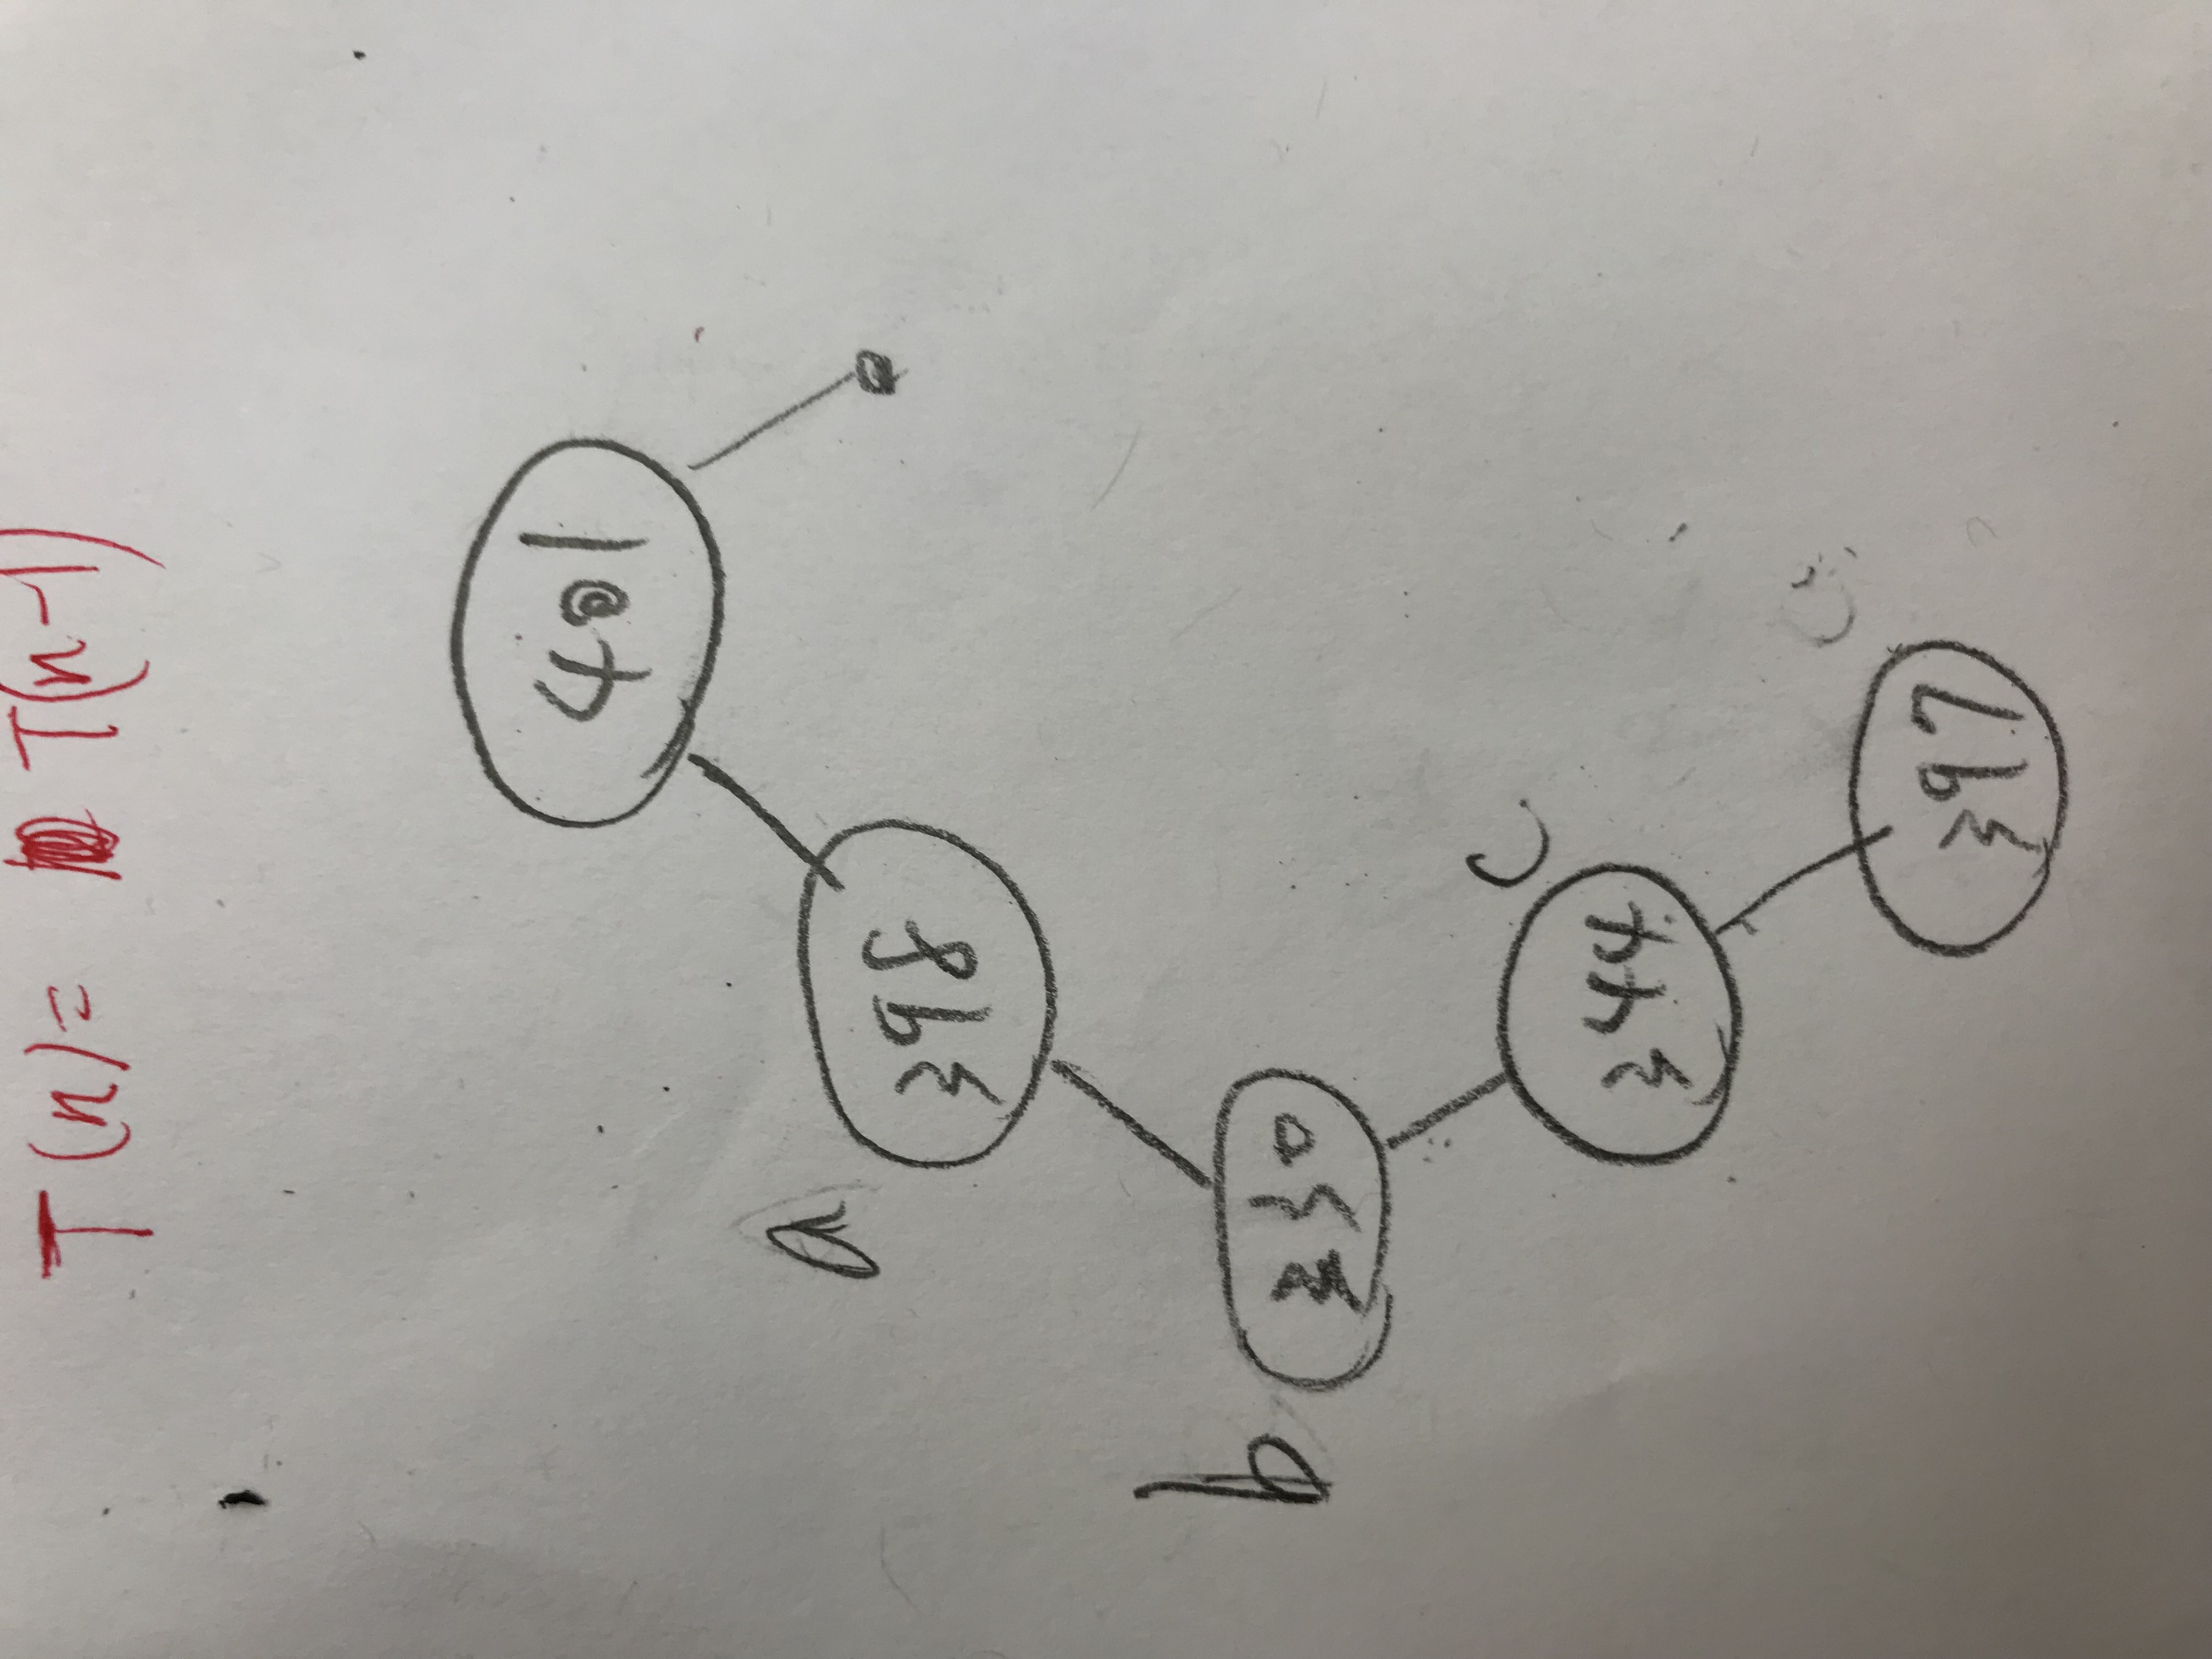 T(n) = T(n-1)
401
a
398
b
330
c
344
397